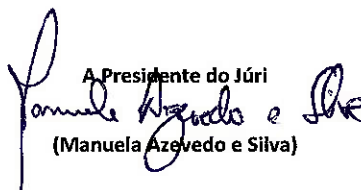 A Presidente do Júri
Manuela Azevedo e Silva
(Manuela Azevedo e Silva)